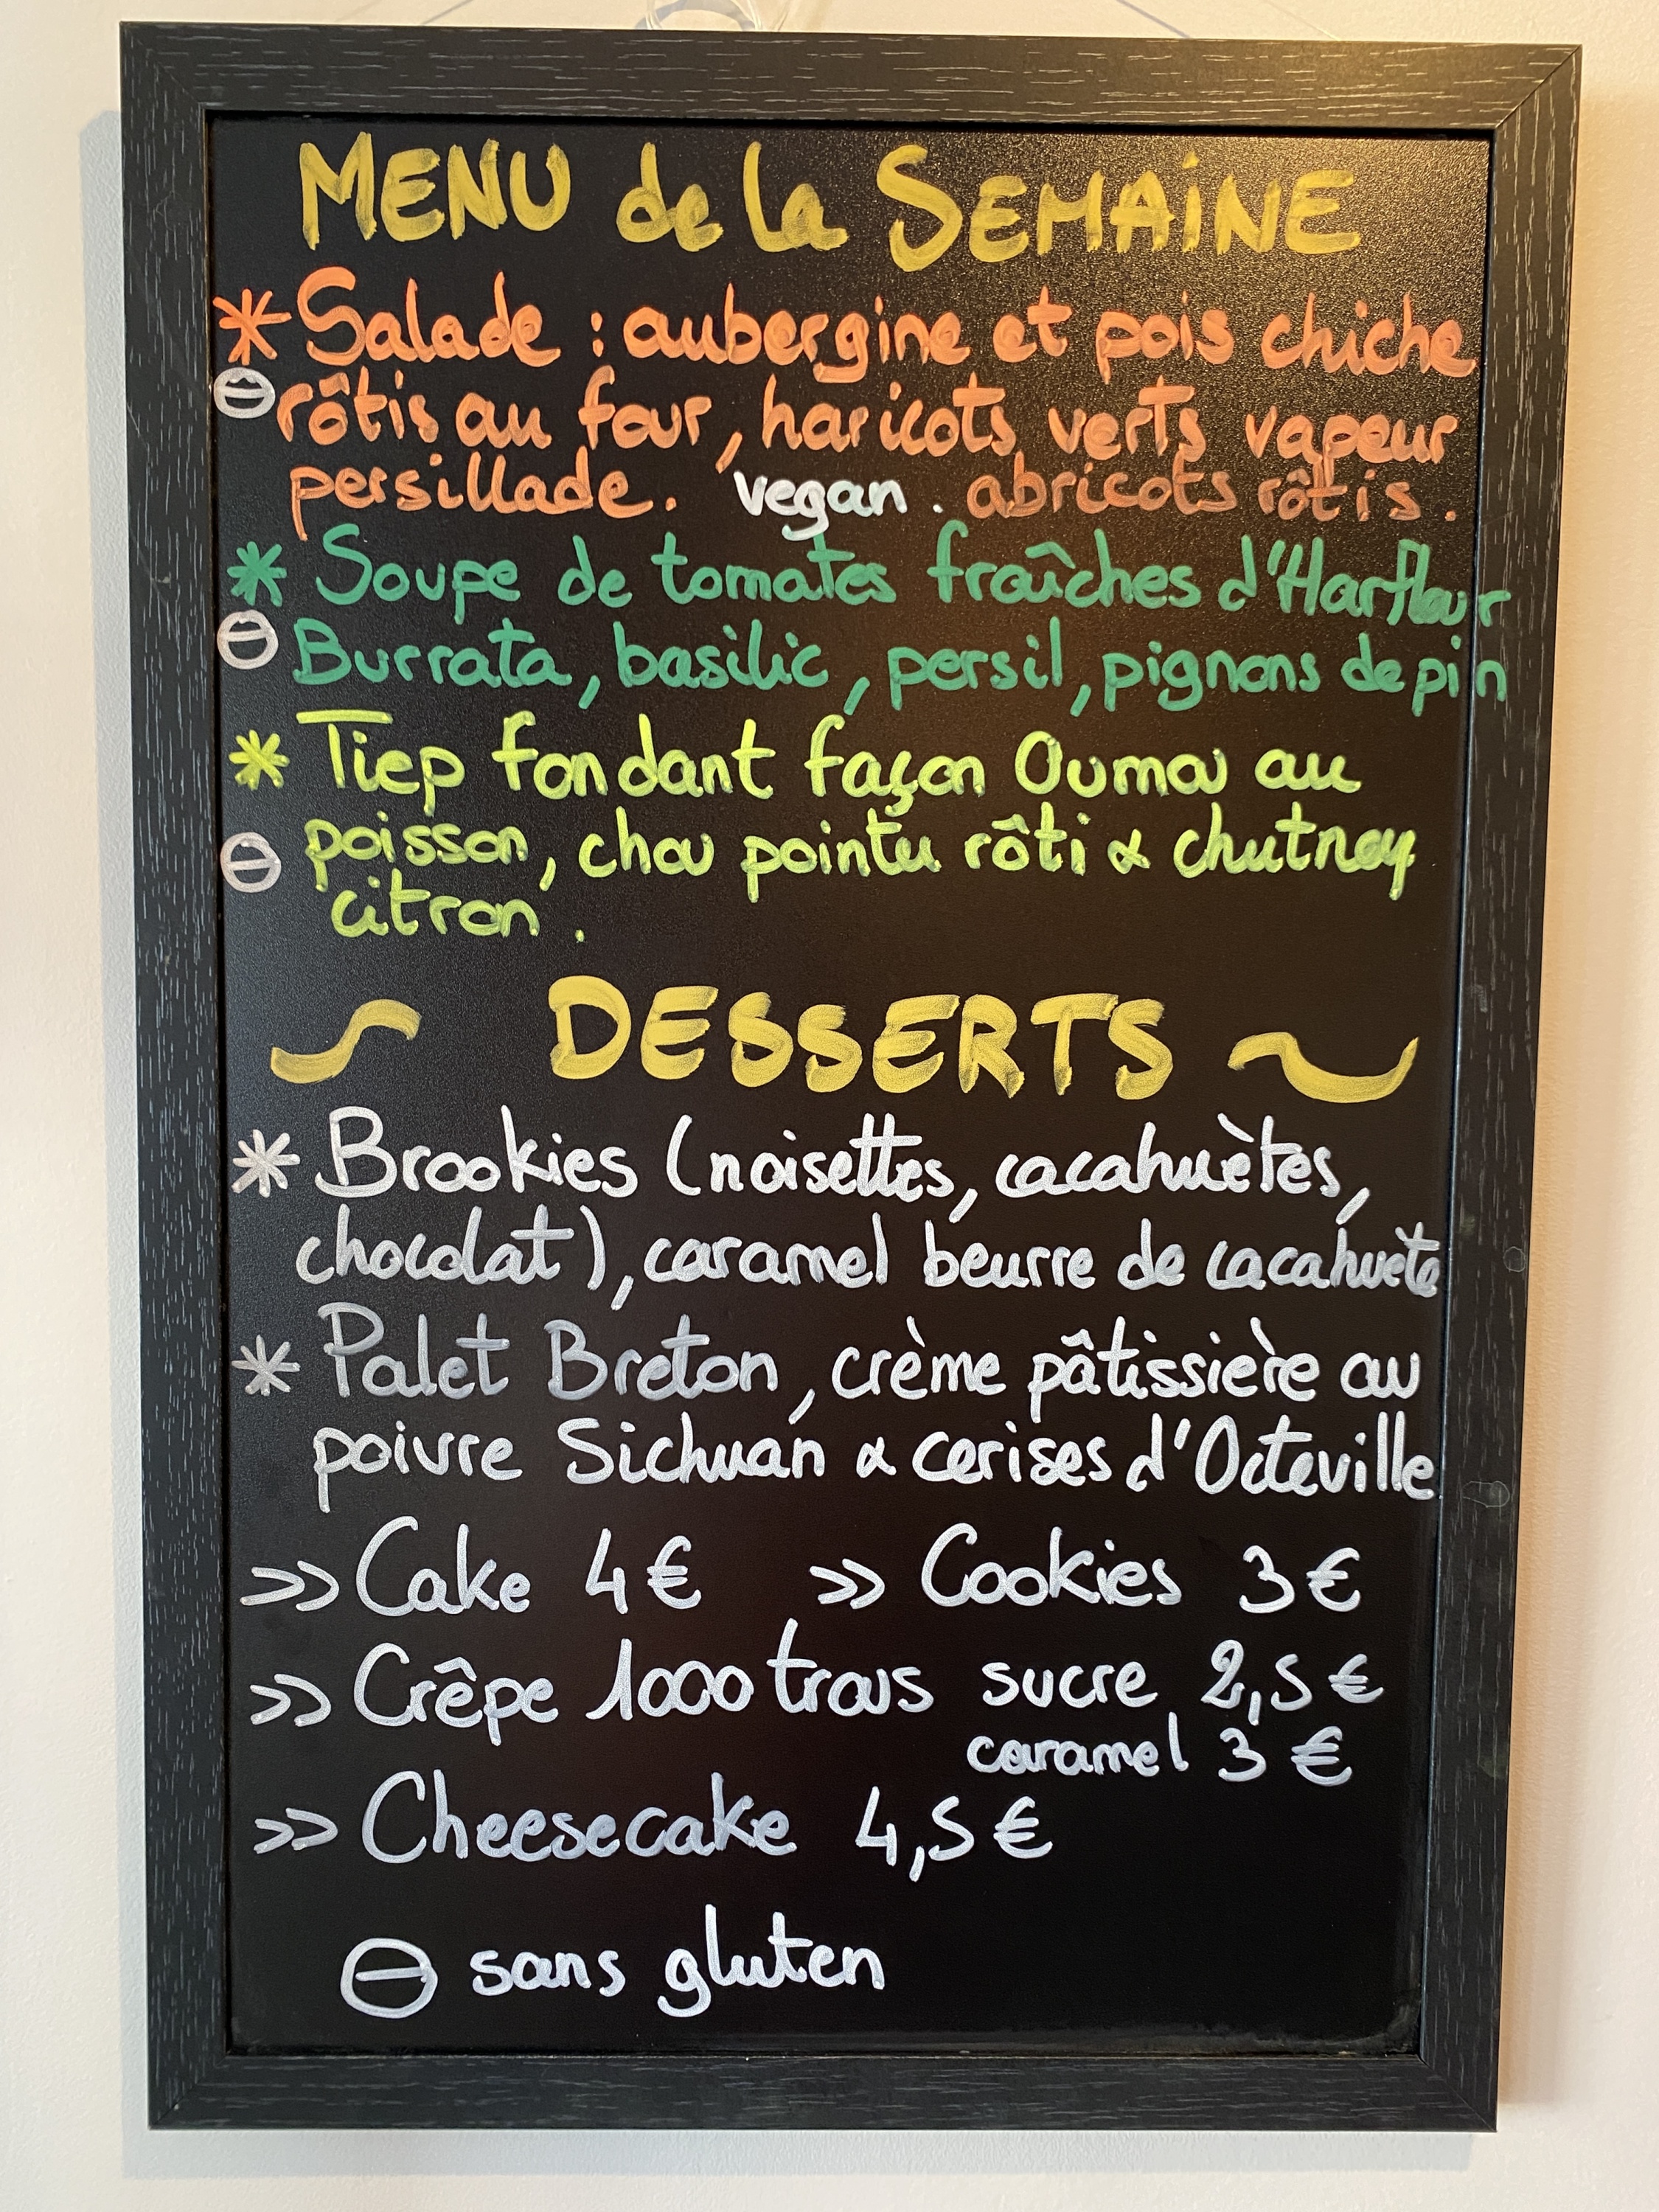 MENU de la SEMAINE
* Salade : aubergine et pois chiche
⊖ rôtis au four, haricots verts vapeur
persillade. vegan. abricots rôtis.
* Soupe de tomates fraîches d'Harfleur
⊖ Burrata, basilic, persil, pignons de pin
* Tiep fondant façon Oumou au
⊖ poisson, chou pointu rôti & chutney
citron.
~ DESSERTS ~
* Brookies (noisettes, cacahuètes,
chocolat), caramel beurre de cacahuète
* Palet Breton, crème pâtissière au
poivre Sichuan & cerises d'Octeville
>> Cake 4€ >> Cookies 3€
>> Crêpe 1000 trous sucre 2,5€
caramel 3€
>> Cheesecake 4,5€
⊖ sans gluten